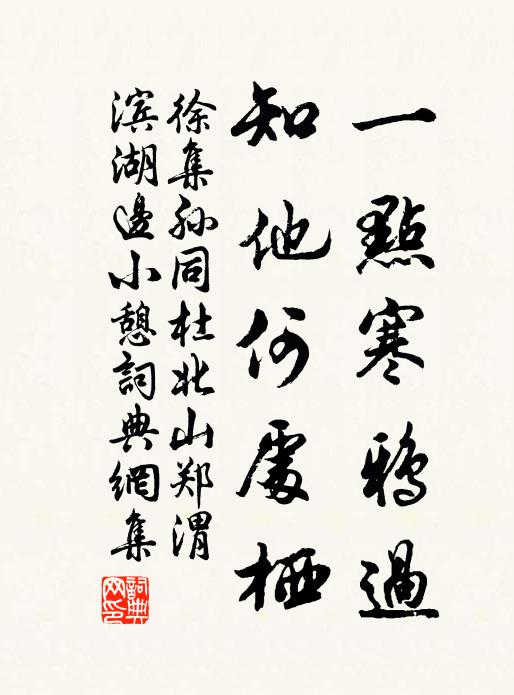 一點寒鴉過
知他何處栖
徐集孙同杜北山郑渭
滨湖邊小憩詞典網集
詞典网印